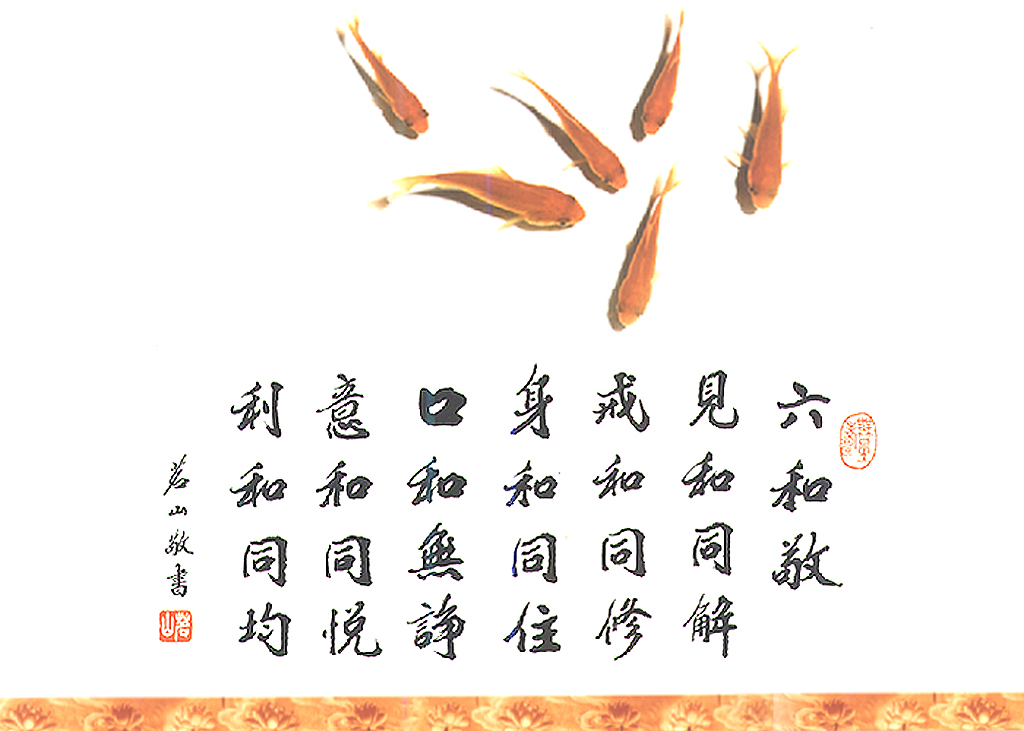 六和敬
見和同解
戒和同修
身和同住
口和無諍
意和同悅
利和同均
茗山敬書